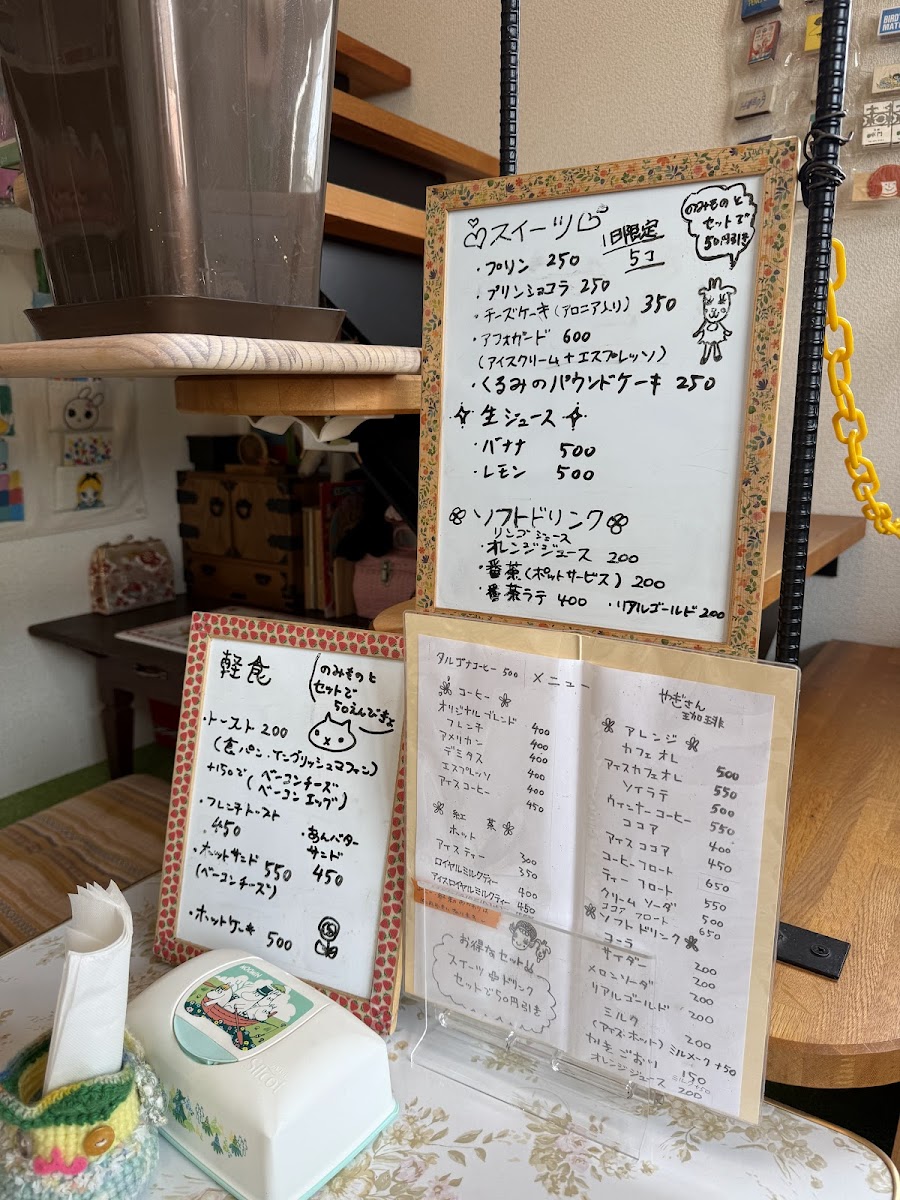 スイーツ
1日限定
5コ
のみものと
セットで
50円引き
・プリン 250
・プリンショコラ 250
・チーズケーキ(アロニア入り) 350
・アフォガード 600
(アイスクリーム+エスプレッソ)
・くるみのパウンドケーキ 250
生ジュース
・バナナ 500
・レモン 500
ソフトドリンク
リンゴジュース
・オレンジジュース 200
・番茶(ポットサービス) 200
・番茶ラテ 400 ・リアルゴールド 200
軽食
のみものと
セットで
50えんびきよ
・トースト 200
(食パン・イングリッシュマフィン)
+150で(ベーコンチーズ
ベーコンエッグ)
・フレンチトースト
450
・あんバター
サンド
450
・ホットサンド 550
(ベーコンチーズ)
・ホットケーキ 500
タルゴナコーヒー 500
メニュー
コーヒー
オリジナルブレンド
フレンチ 400
アメリカン 400
デミタス 400
エスプレッソ 400
アイスコーヒー 450
紅茶
ホット 300
アイスティー 350
ロイヤルミルクティー 400
アイスロイヤルミルクティー 450
お得なセット
スイーツ ドリンク
セットで50円引き
やぎさん
珈琲
アレンジ
カフェオレ 500
アイスカフェオレ 550
ソイラテ 500
ウィンナーコーヒー 550
ココア 400
アイスココア 450
コーヒーフロート 650
ティーフロート 550
クリームソーダ 500
ココアフロート 650
ソフトドリンク
コーラ 200
サイダー 200
メロンソーダ 200
リアルゴールド
ミルク 200
(アイス・ホット) ミルメーク+50
かきごおり 150
ミルク+50
オレンジジュース 200
MOOMIN